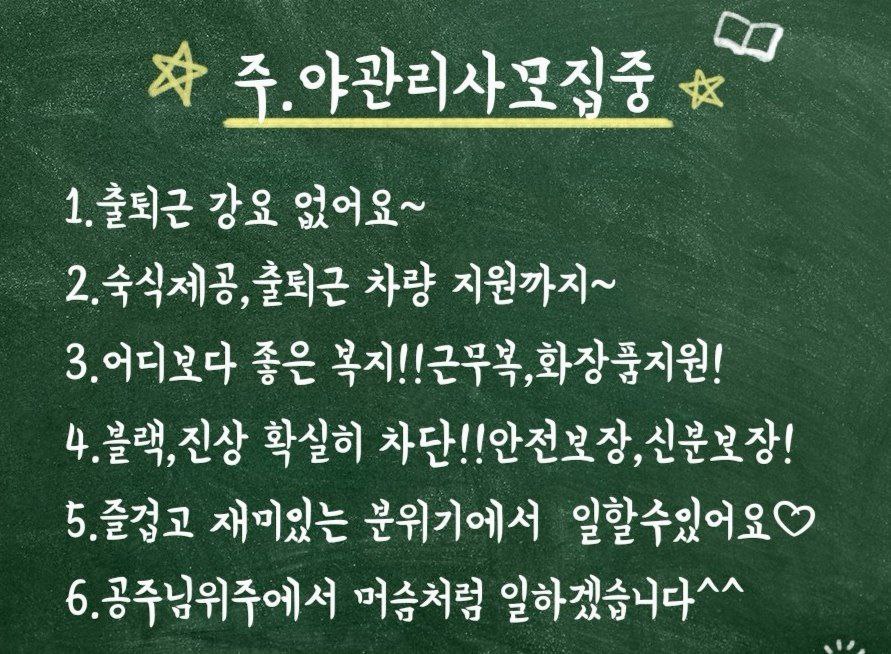 주.야관리사모집중
1.출퇴근 강요 없어요~
2.숙식제공,출퇴근 차량 지원까지~
3.어디보다 좋은 복지!!근무복,화장품지원!
4.블랙,진상 확실히 차단!!안전보장,신분보장!
5.즐겁고 재미있는 분위기에서 일할수있어요♡
6.공주님위주에서 머슴처럼 일하겠습니다^^